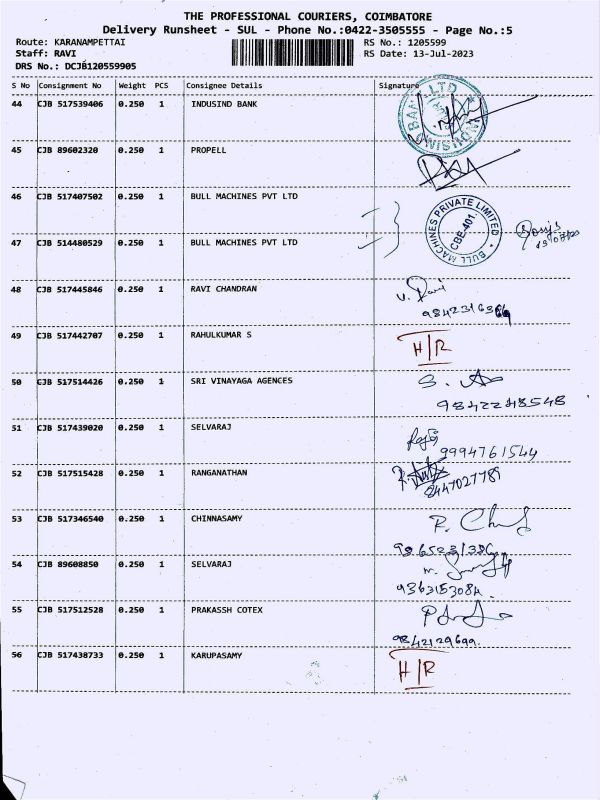 THE PROFESSIONAL COURIERS, COIMBATORE
Delivery Runsheet - SUL - Phone No.:0422-3505555 - Page No.:5
Route: KARANAMPETTAI
RS No.: 1205599
Staff: RAVI
RS Date: 13-Jul-2023
DRS No.: DCJB120559905
S No Consignment No Weight PCS Consignee Details Signature
44 CJB 517539406 0.250 1 INDUSIND BANK
45 CJB 89602320 0.250 1 PROPELL
46 CJB 517407502 0.250 1 BULL MACHINES PVT LTD
BULL MACHINES PRIVATE LIMITED
CBE-401.
47 CJB 514480529 0.250 1 BULL MACHINES PVT LTD
48 CJB 517445846 0.250 1 RAVI CHANDRAN
49 CJB 517442707 0.250 1 RAHULKUMAR S H/R
50 CJB 517514426 0.250 1 SRI VINAYAGA AGENCES
9842248548
51 CJB 517439020 0.250 1 SELVARAJ
9994761544
52 CJB 517515428 0.250 1 RANGANATHAN
9447027789
53 CJB 517346540 0.250 1 CHINNASAMY
54 CJB 89608850 0.250 1 SELVARAJ
55 CJB 517512528 0.250 1 PRAKASSH COTEX
9842129699.
56 CJB 517438733 0.250 1 KARUPASAMY H/R